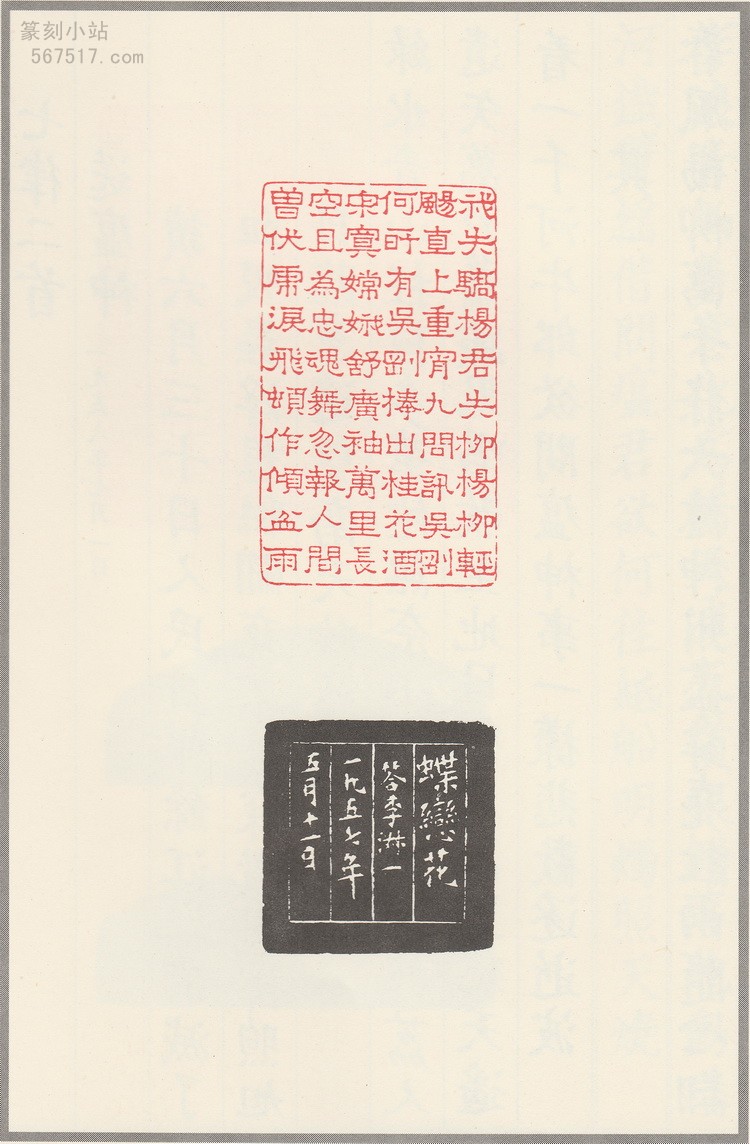 篆刻小站
567517.com
我失驕楊君失柳楊柳輕
颺直上重宵九問訊吳剛
何所有吳剛捧出桂花酒
寂寞嫦娥舒廣袖萬里長
空且為忠魂舞忽報人間
曾伏虎淚飛頓作傾盆雨
蝶戀花
答李淑一
一九五七年
五月十一日